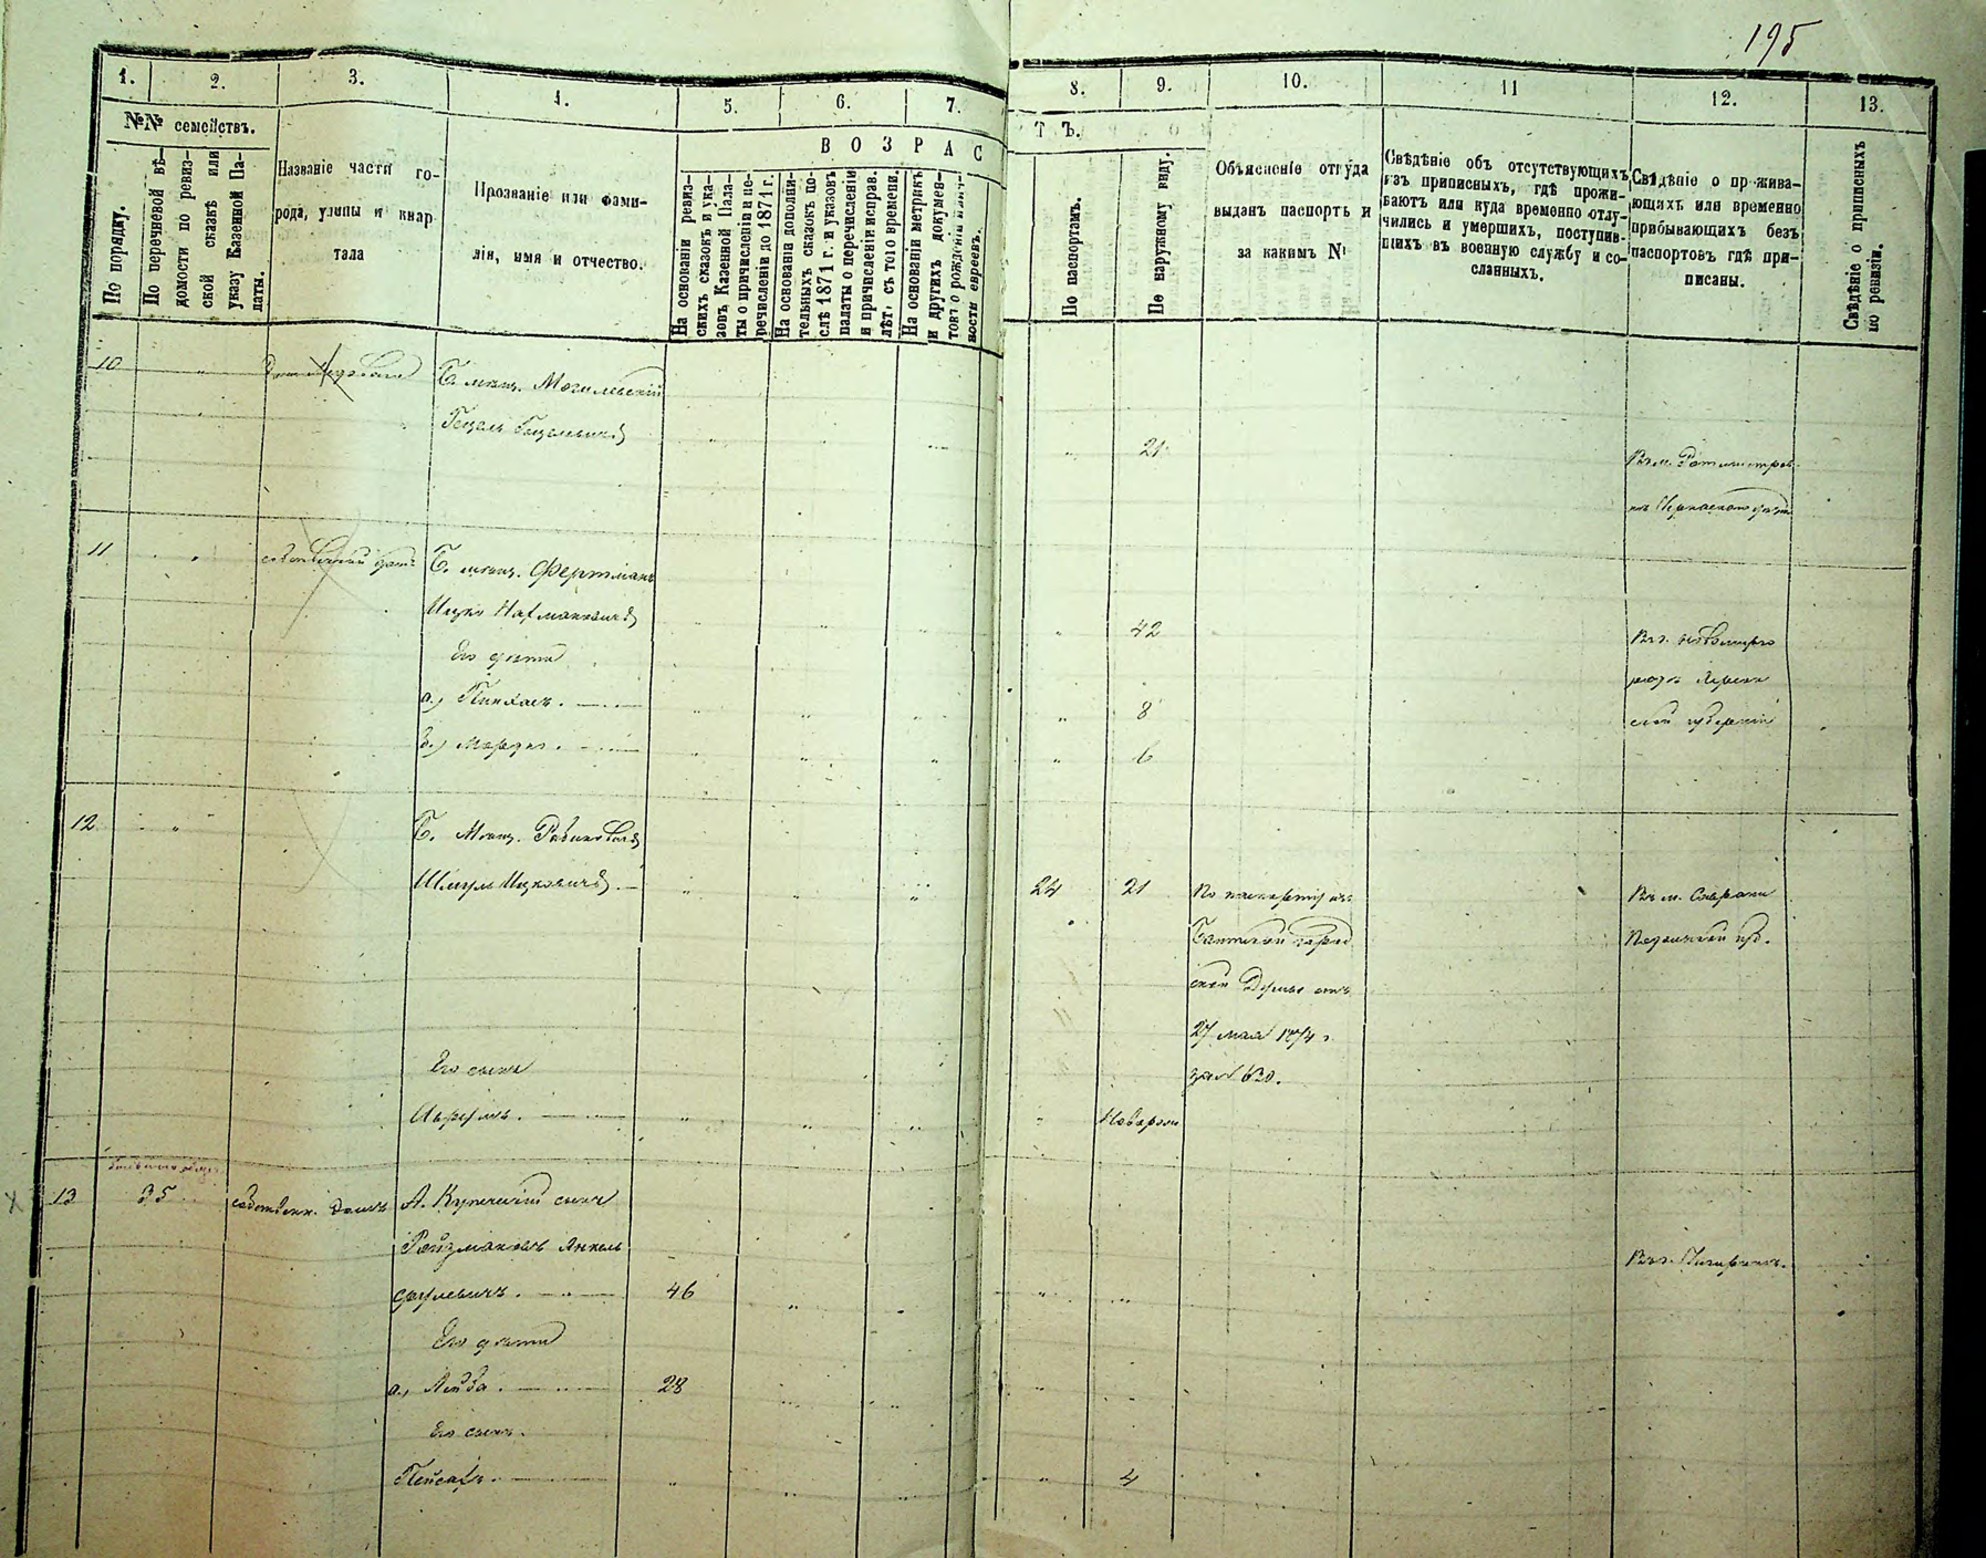 195
1. 2. 3. 4. 5. 6. 7. 8. 9. 10. 11 12. 13.
№№ семействъ.
По порядку.
По перечневой вѣ-
домости по ревиз-
ской сказкѣ или
указу Казенной Па-
латы.
Названіе части го-
рода, улицы и квар
тала
Прозваніе или фами-
лія, имя и отчество.
ВОЗРАС
ТЪ.
На основаніи ревиз-
скихъ сказокъ и ука-
зовъ Казенной Пала-
ты о причисленіи и пе-
речисленіи до 1871 г.
На основаніи дополни-
тельныхъ сказокъ по-
слѣ 1871 г. и указовъ
палаты о перечисленіи
и причисленіи исправ.
лѣт. съ того времени.
На основаніи метрикъ
и другихъ докумен-
товъ о рожденіи
ности евреевъ.
По паспортамъ.
По наружному виду.
Объясненіе откуда
выданъ паспортъ и
за какимъ №
Свѣдѣніе объ отсутствующихъ
изъ приписныхъ, гдѣ прожи-
ваютъ или куда временно отлу-
чились и умершихъ, поступив-
шихъ въ военную службу и со-
сланныхъ.
Свѣдѣніе о прожива-
ющихъ или временно
прибывающихъ безъ
паспортовъ гдѣ при-
писаны.
Свѣдѣніе о приписныхъ
по ревизіи.
10 Б. мѣщ. Могилевскій
Гецель Гецелевичъ 21 Въ м. Ротмистров
кѣ Черкасскаго уѣзда
11 собственный домъ Б. мѣщ. Фертманъ
Ицко Нахмановичъ 42 Въ г. Новомирго
его дѣти родѣ Херсон
а., Пинхасъ. 8 ской губерніи
б., Мордко. 6
12 Б. Мѣщ. Рабиновичъ
Шмуль Ицковичъ 24 21 По паспорту изъ Въ м. Саврани
Балтской город Подольской губ.
ской Думы отъ
27 мая 1874 г.
его сынъ за № 620.
Аврумъ.
13 35 собственн. домъ А. Купеческій сынъ
Ройзмановъ Янкель Въ г. Чигиринѣ.
Срулевичъ. 46
Его дѣти
а., Лейба. 28
его сынъ.
Пейсахъ. 4